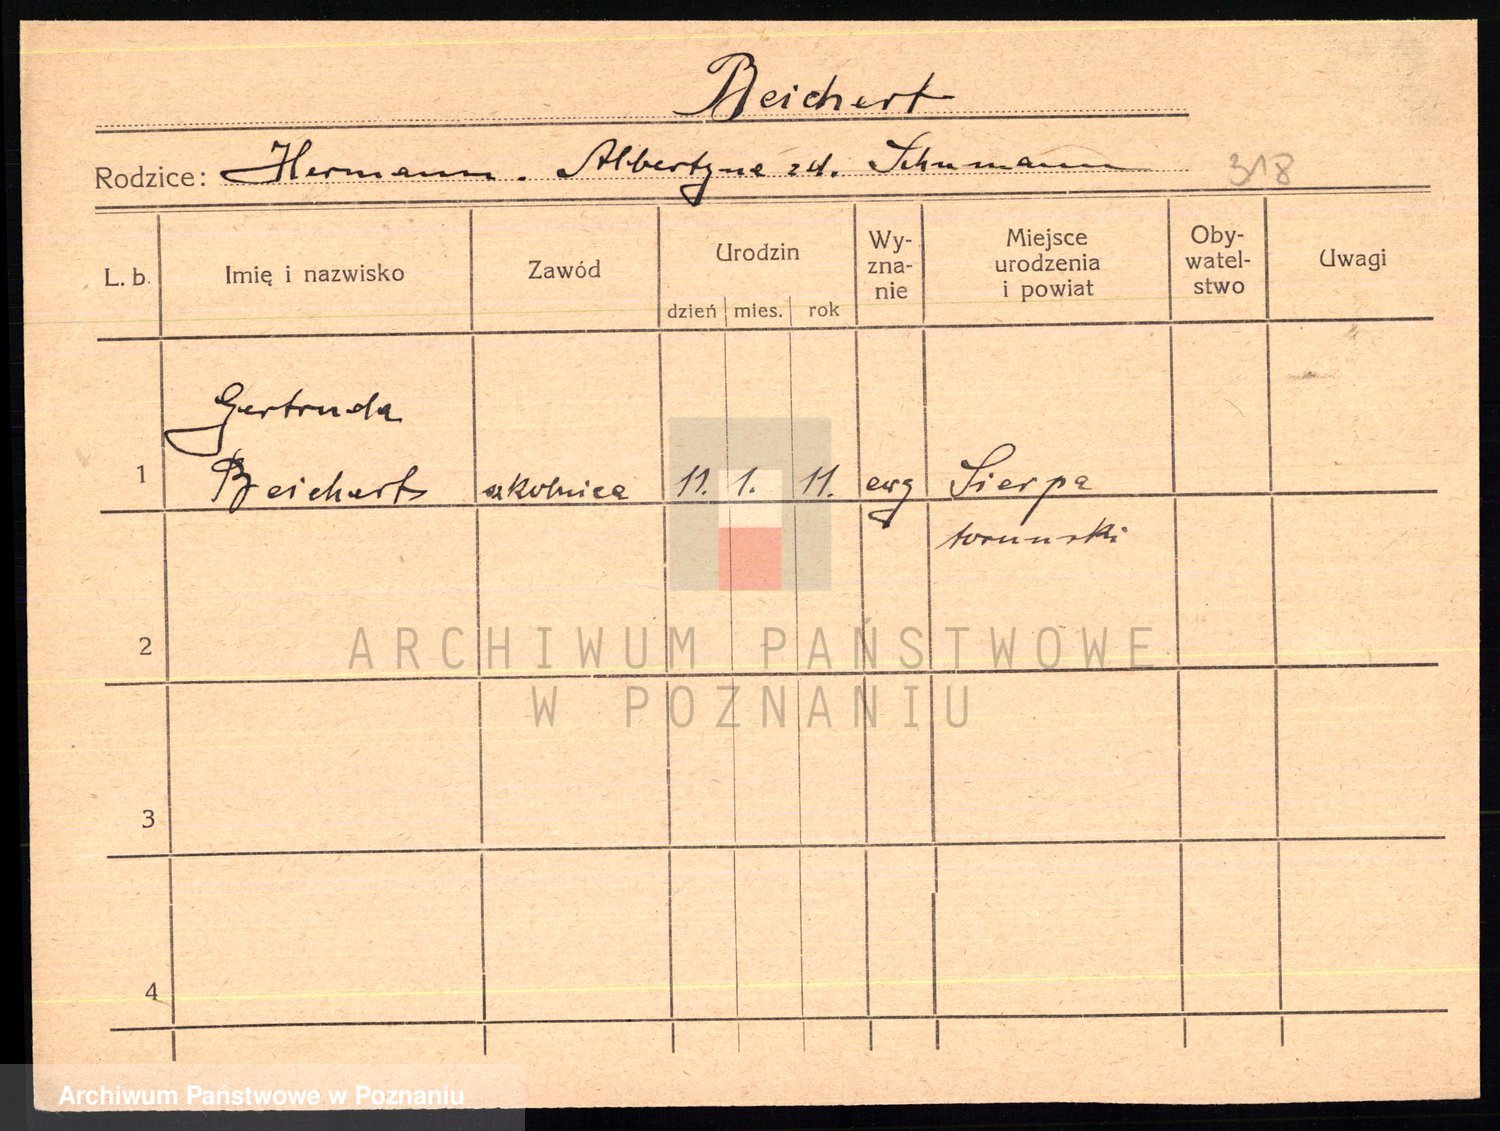 Beichert
Rodzice: Hermann. Albertyna zd. Schumann
318
L. b.
Imię i nazwisko
Zawód
Urodzin
dzień mies. rok
Wy-
zna-
nie
Miejsce
urodzenia
i powiat
Oby-
watel-
stwo
Uwagi
Gertruda
1 Beichert 11. 1. 11. ewg Sierpa
toruński
2
ARCHIWUM PAŃSTWOWE
W POZNANIU
3
4
Archiwum Państwowe w Poznaniu